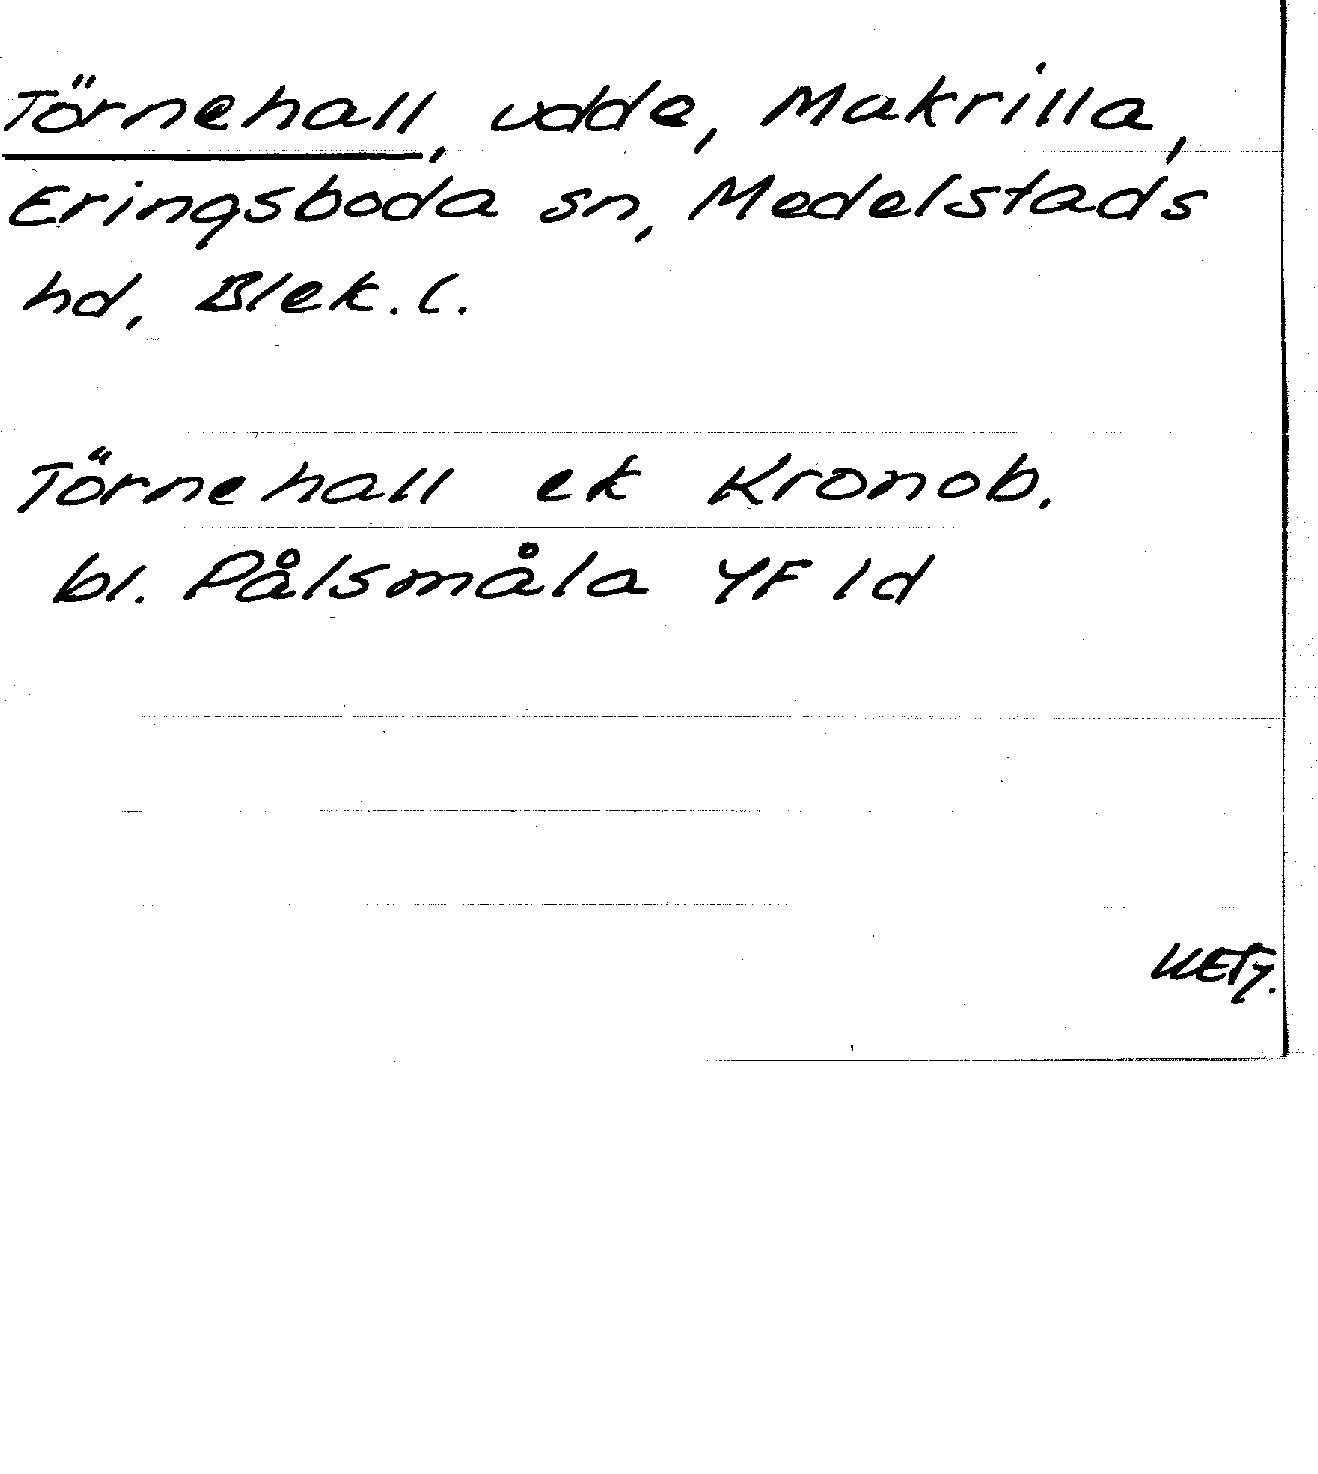 Törnehall, udde, Makrilla,
Eringsboda sn, Medelstads
hd, Blek. l.
Törnehall ek Kronob.
bl. Pålsmåla YF 1d